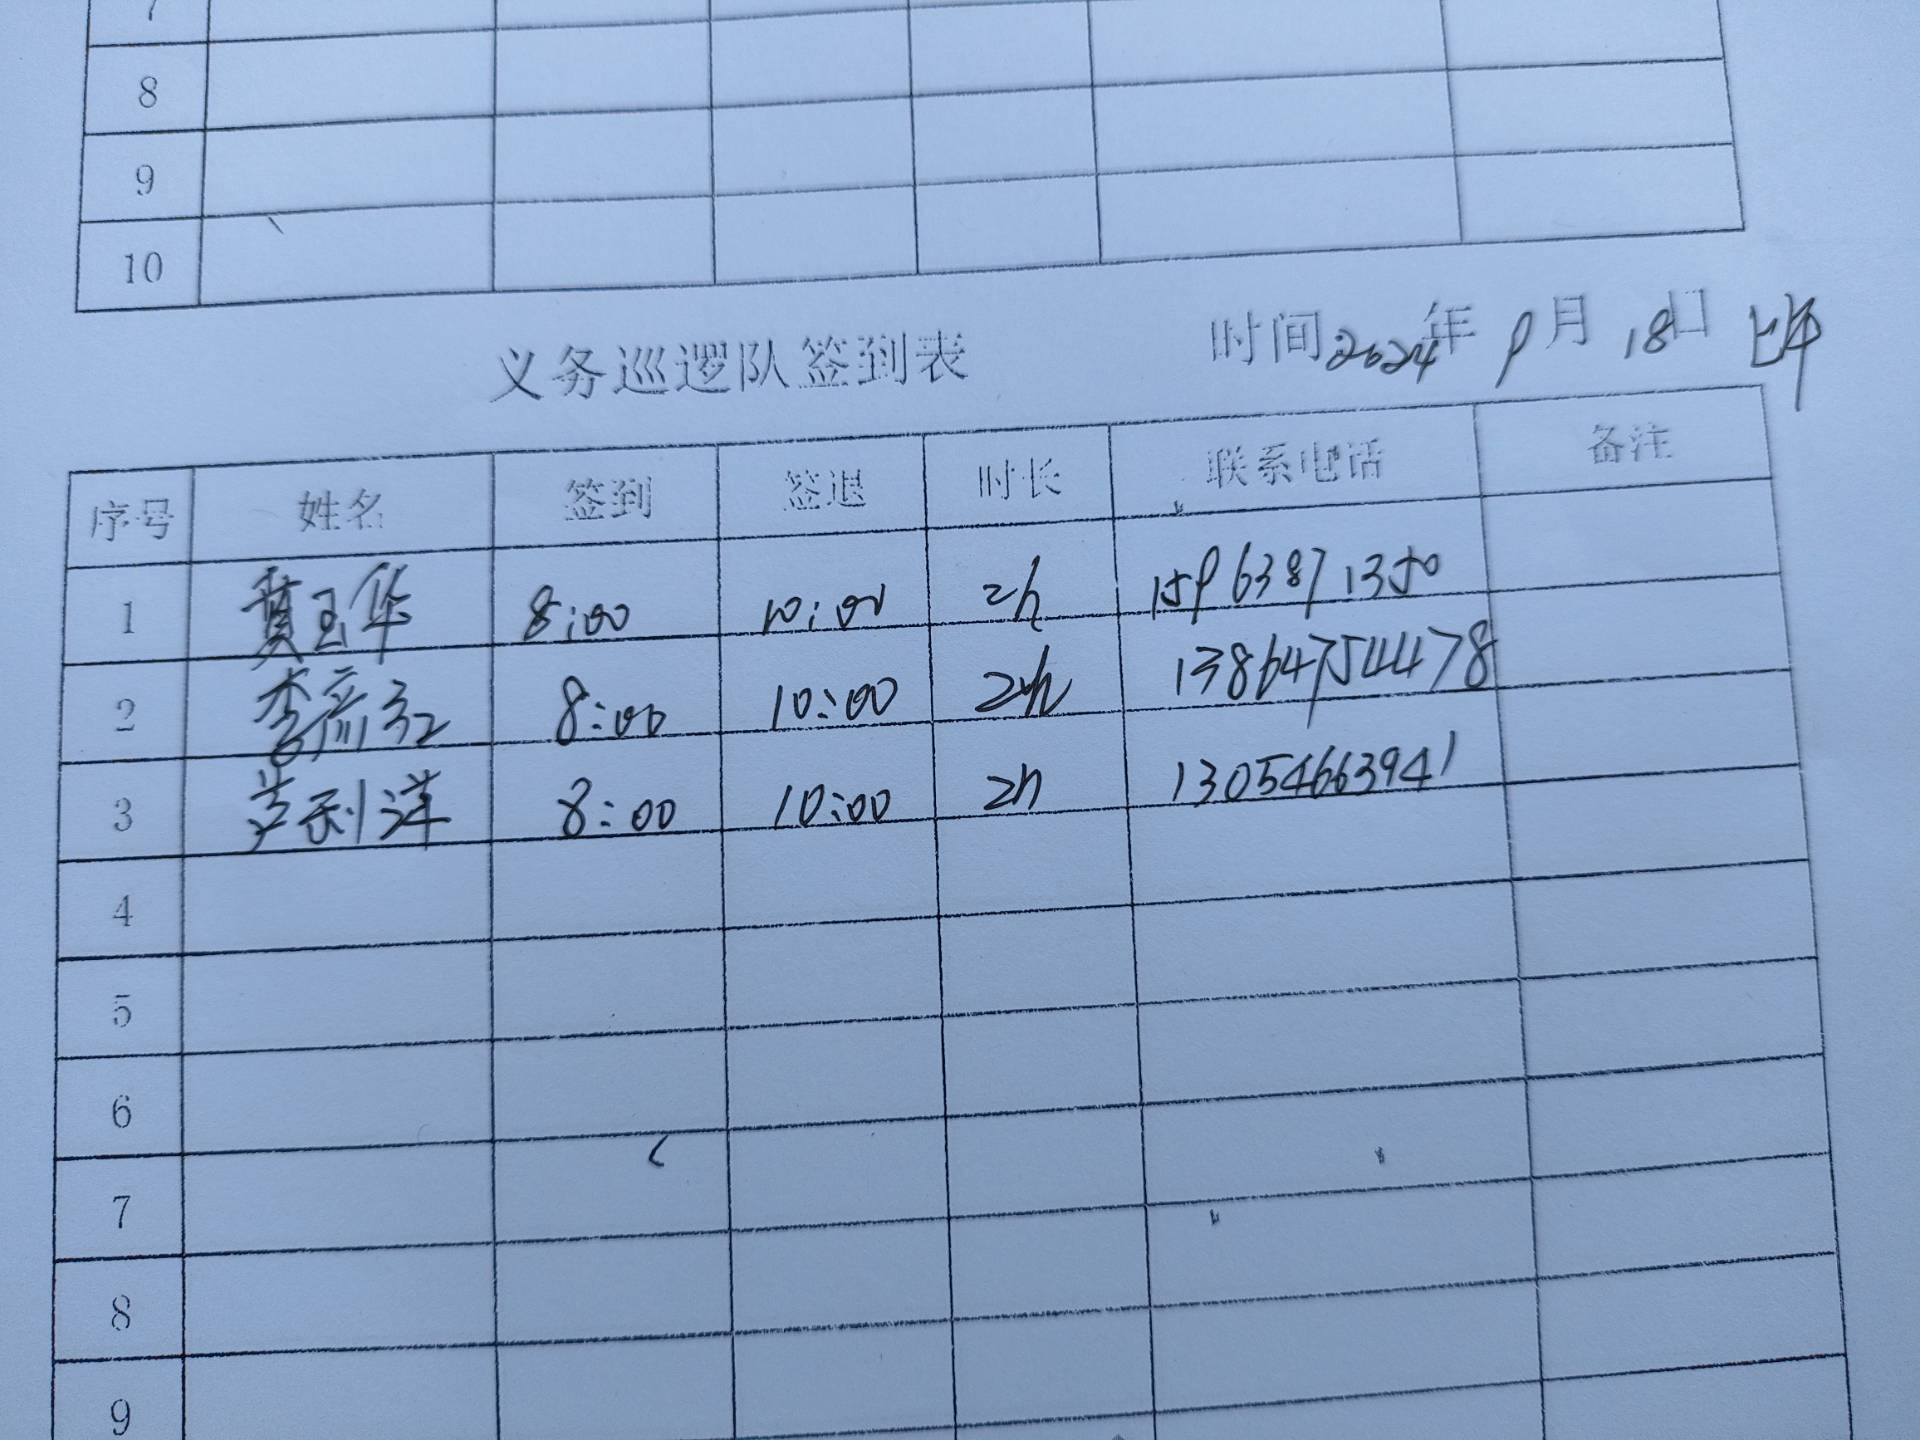 7
8
9
10
义务巡逻队签到表 时间2024年9月18日 上午
序号 姓名 签到 签退 时长 联系电话 备注
1 黄玉华 8:00 10:00 2h 15963871350
2 李彦弘 8:00 10:00 2h 13864754478
3 芦利洋 8:00 10:00 2h 13054663941
4
5
6
7
8
9